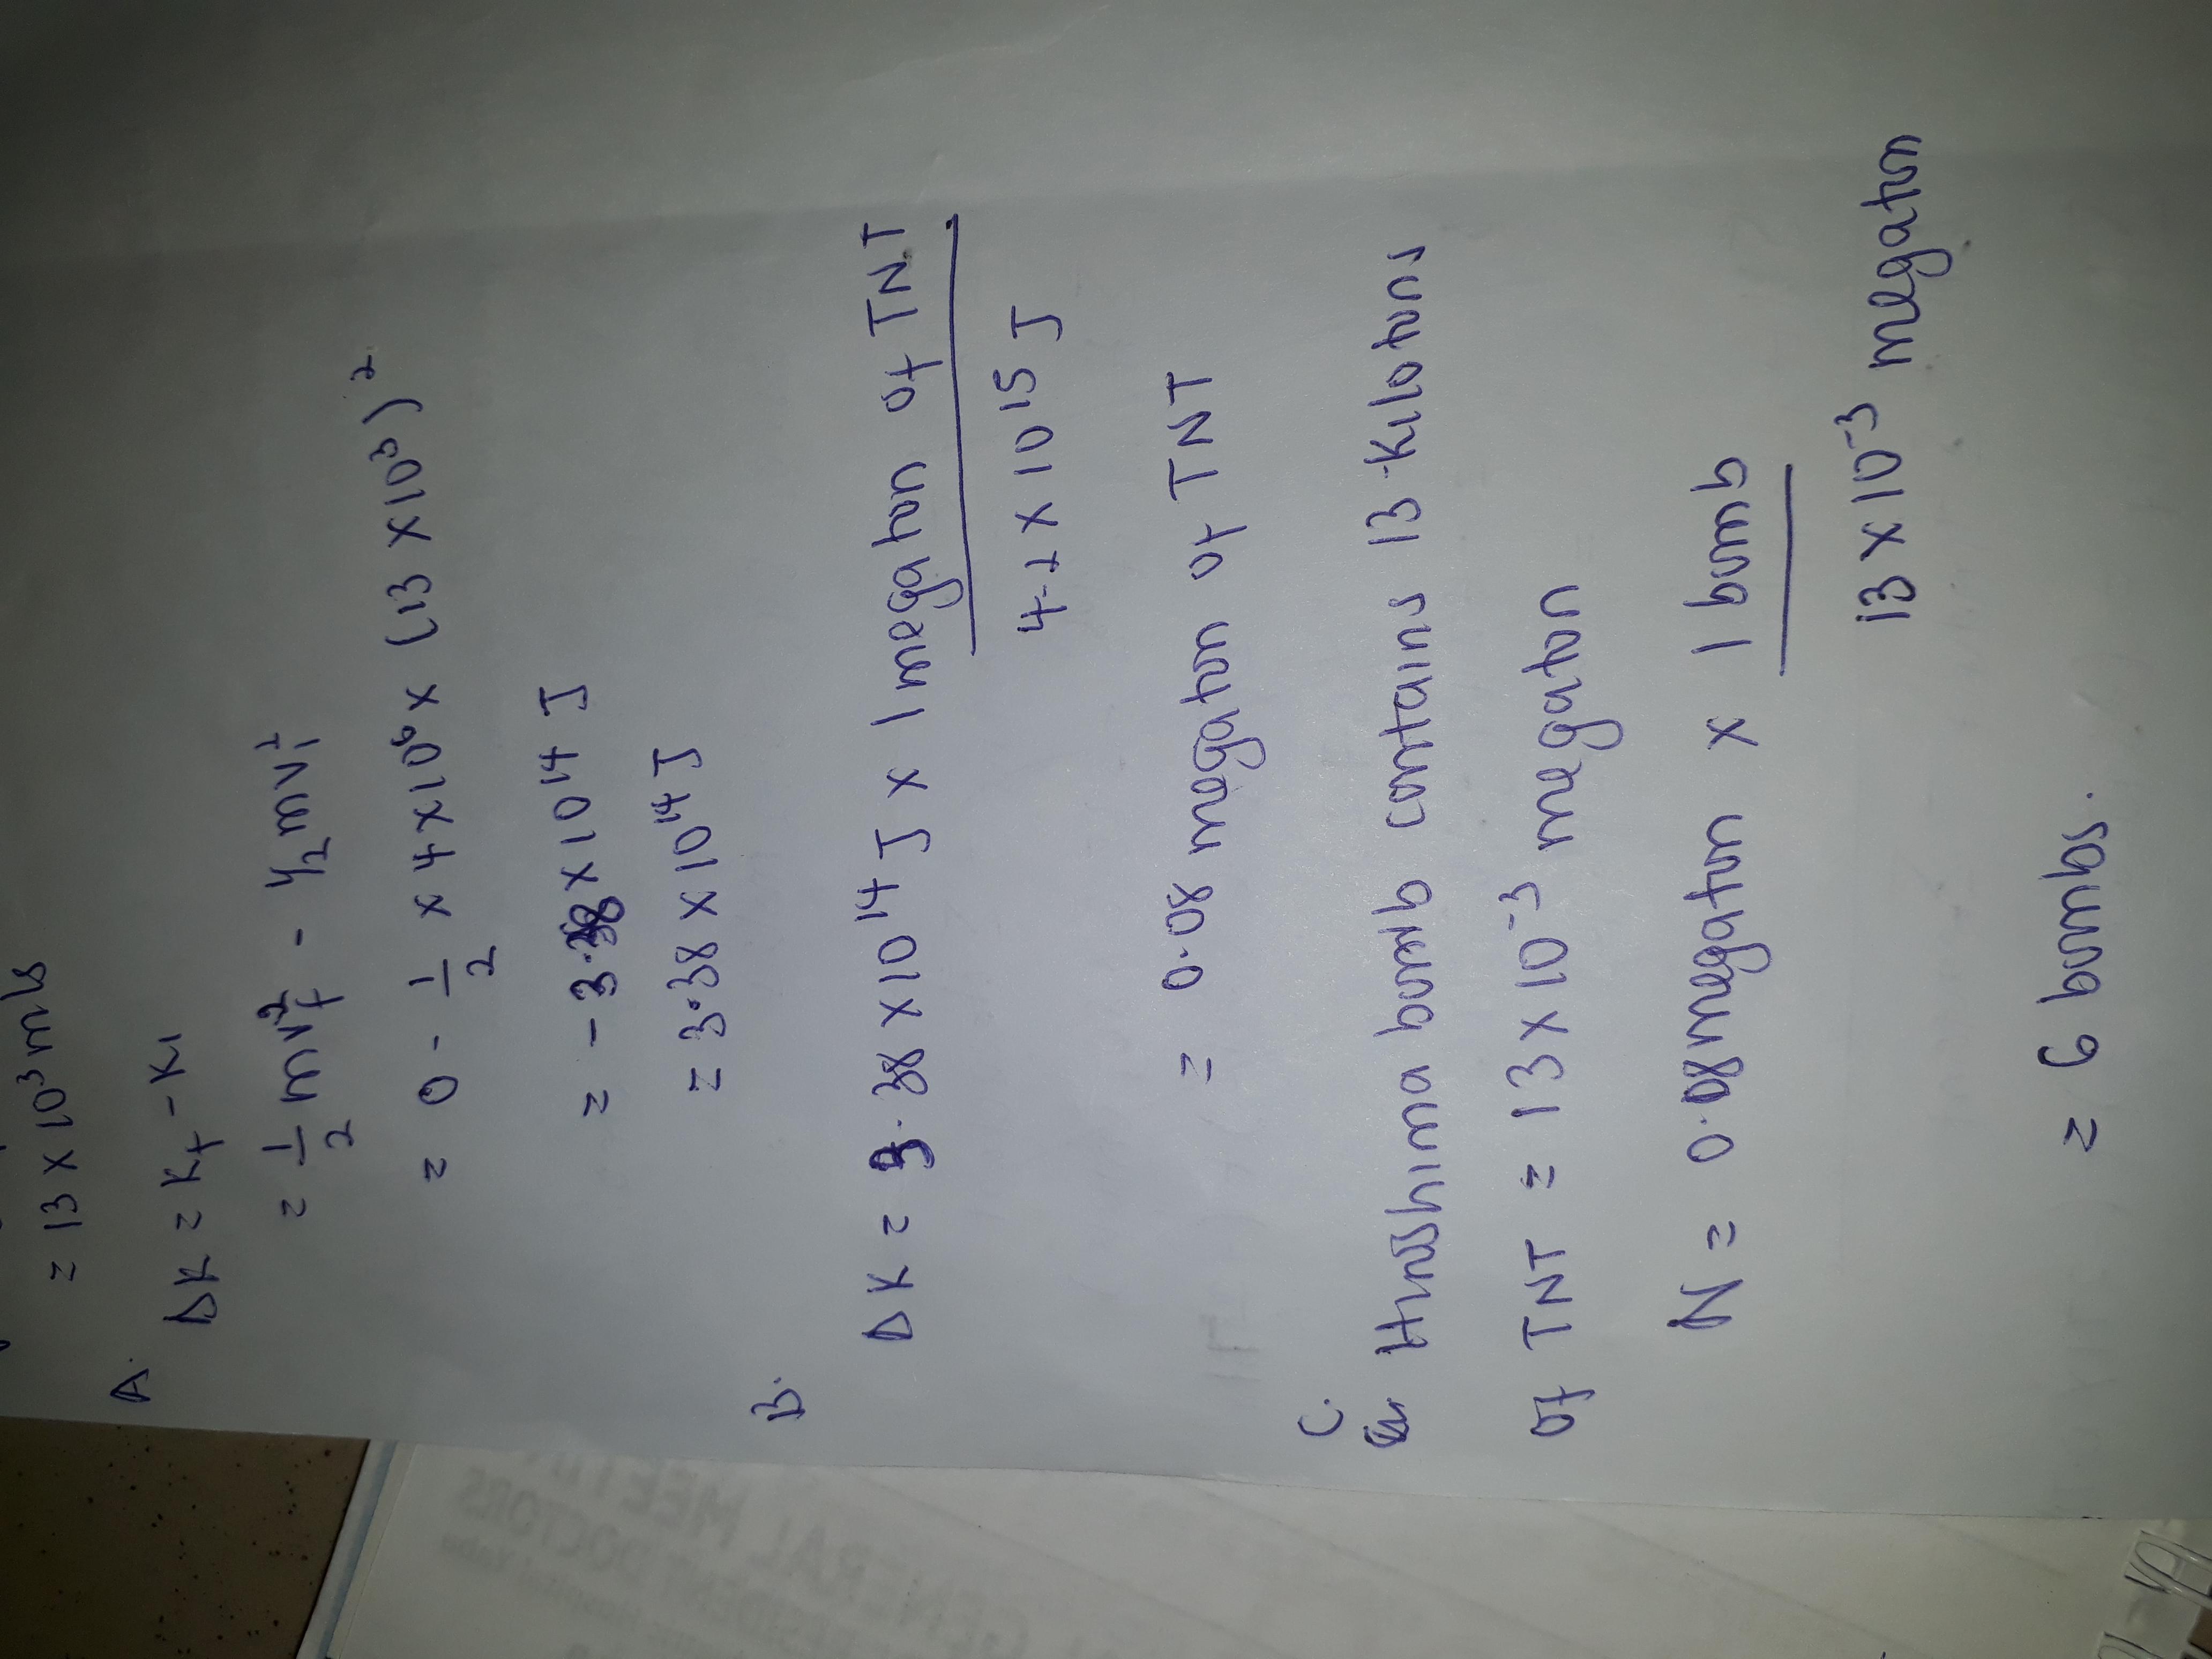 = 13 x 10³ m/s
A.
ΔK = Kf - Ki
= 1/2 mvf² - 1/2 mvi²
= 0 - 1/2 x 4 x 10⁶ x (13 x 10³)²
= - 3.38 x 10¹⁴ J
= 3.38 x 10¹⁴ J
B.
ΔK = 3.38 x 10¹⁴ J x 1 megaton of TNT
4.2 x 10¹⁵ J
= 0.08 megaton of TNT
C.
Hiroshima bomb contains 13 kilotons
of TNT = 13 x 10⁻³ megaton
N = 0.08 megaton x 1 bomb
13 x 10⁻³ megaton
= 6 bombs.
GENERAL MEETIN
RESIDENT DOCTORS